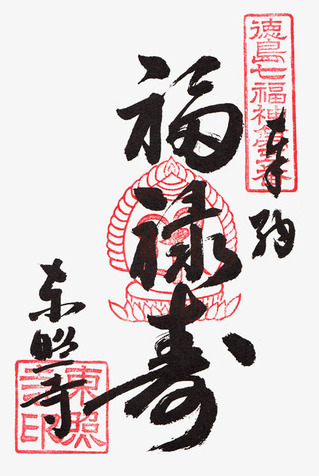 徳島七福神第壱番
奉納
福禄寿
東照寺
東照
寺印